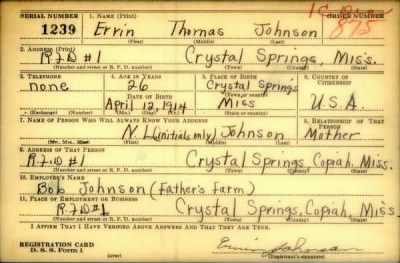 SERIAL NUMBER 1. NAME (Print) ORDER NUMBER
1239 Ervin Thomas Johnson 875
(First) (Middle) (Last)
2. ADDRESS (Print)
R.F.D #1 Crystal Springs, Miss.
(Number and street or R. F. D. number) (Town) (County) (State)
3. TELEPHONE 4. AGE IN YEARS 5. PLACE OF BIRTH 6. COUNTRY OF CITIZENSHIP
none 26 Crystal Springs
DATE OF BIRTH (Town or county)
April 12, 1914 Miss U.S.A.
(Exchange) (Number) (Mo.) (Day) (Yr.) (State or country)
7. NAME OF PERSON WHO WILL ALWAYS KNOW YOUR ADDRESS 8. RELATIONSHIP OF THAT PERSON
N. L (initials only) Johnson Mother
(Mr., Mrs., Miss) (First) (Middle) (Last)
9. ADDRESS OF THAT PERSON
R.F.D #1 Crystal Springs, Copiah, Miss.
(Number and street or R. F. D. number) (Town) (County) (State)
10. EMPLOYER'S NAME
Bob Johnson (Father's farm)
11. PLACE OF EMPLOYMENT OR BUSINESS
R.F.D #1 Crystal Springs, Copiah, Miss
(Number and street or R. F. D. number) (Town) (County) (State)
I AFFIRM THAT I HAVE VERIFIED ABOVE ANSWERS AND THAT THEY ARE TRUE.
REGISTRATION CARD
D. S. S. Form 1 (over) (Registrant's signature)